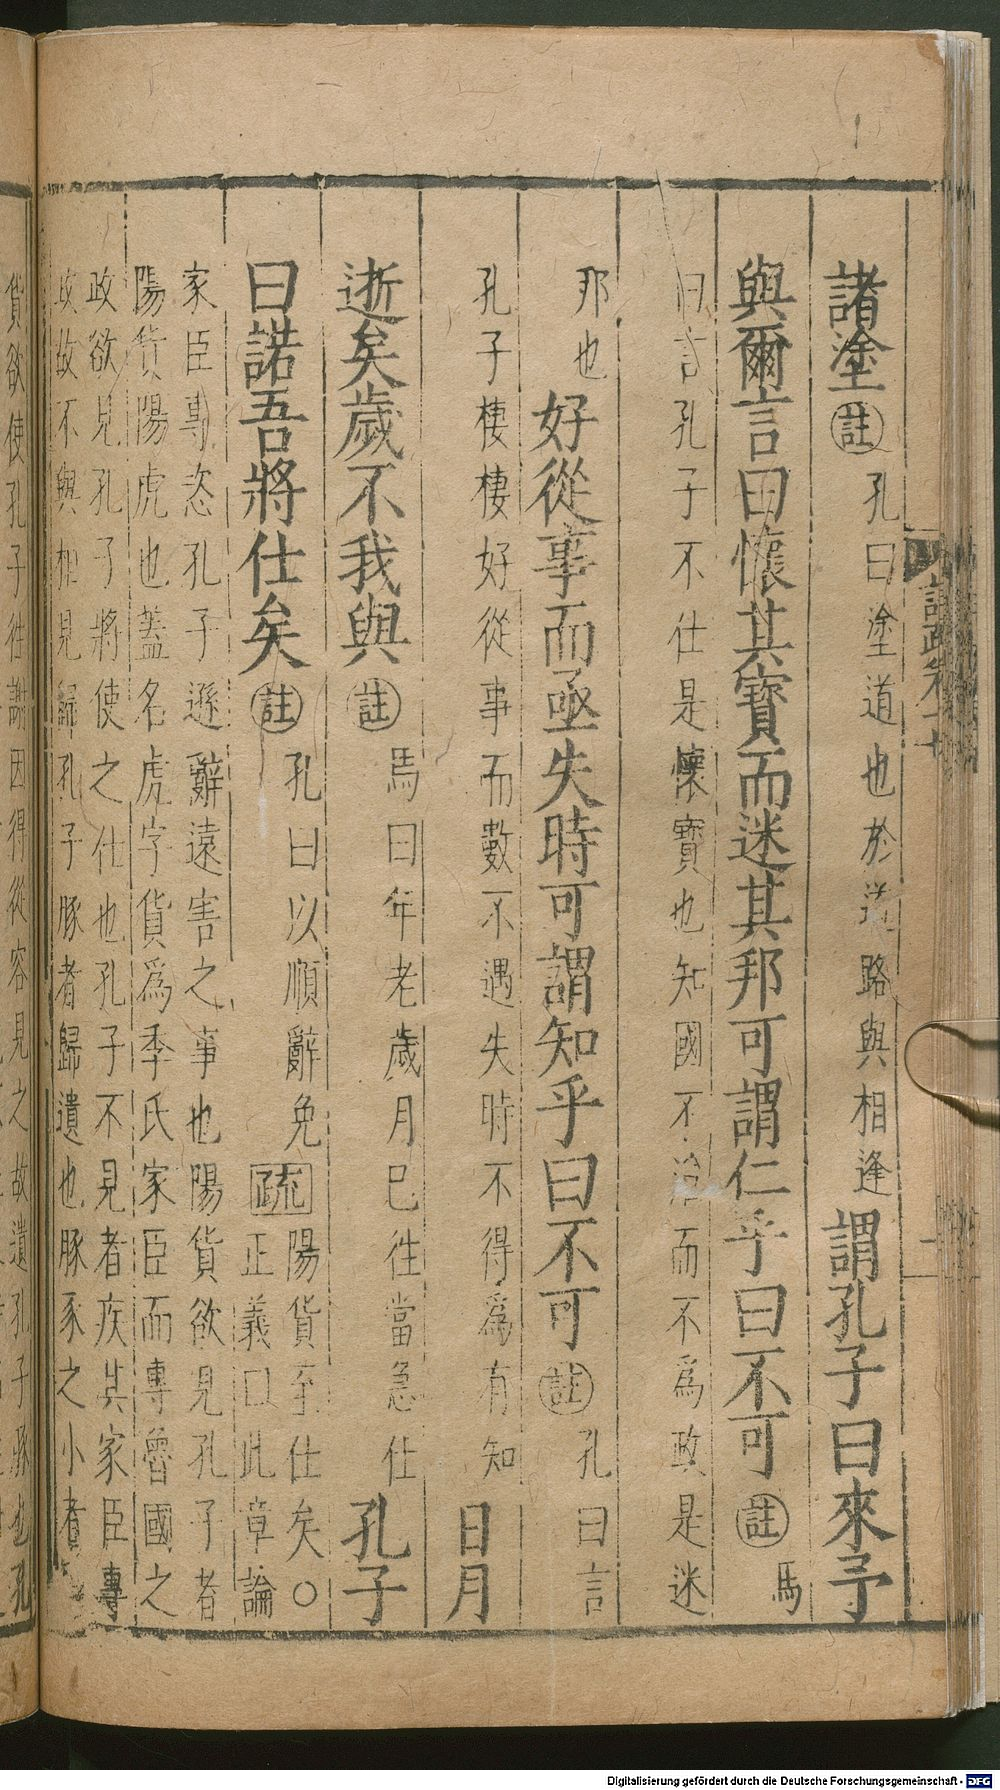 諸塗註孔曰塗道也於道路與相逢謂孔子曰來予
與爾言曰懷其寶而迷其邦可謂仁乎曰不可註馬
曰言孔子不仕是懷寶也知國不治而不爲政是迷
邦也好從事而亟失時可謂知乎曰不可註孔曰言
孔子棲棲好從事而數不遇失時不得爲有知日月
逝矣歲不我與註馬曰年老歲月已往當急仕孔子
曰諾吾將仕矣註孔曰以順辭免疏陽貨至仕矣○
正義曰此章論
家臣專恣孔子遜辭遠害之事也陽貨欲見孔子者
陽貨陽虎也蓋名虎字貨爲季氏家臣而專魯國之
政欲見孔子將使之仕也孔子不見者疾其家臣專
政故不與相見歸孔子豚者歸遺也豚豕之小者
貨欲使孔子往謝因得從容見之故遺孔子豚也孔
Digitalisierung gefördert durch die Deutsche Forschungsgemeinschaft - DFG